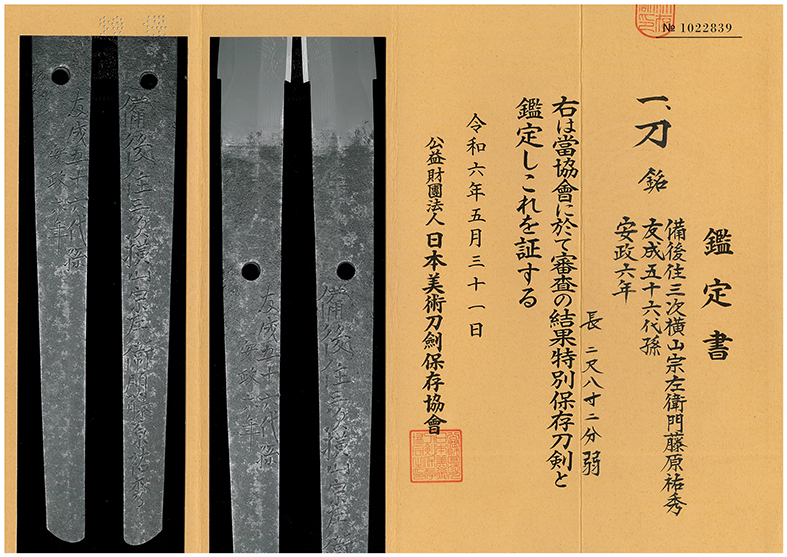 № 1022839
鑑定書
一、刀 銘
備後住三次横山宗左衛門藤原祐秀
友成五十六代孫
安政六年
長 二尺八寸二分弱
右は當協會に於て審査の結果特別保存刀剣と
鑑定しこれを証する
令和六年五月三十一日
公益財團法人 日本美術刀劍保存協會
備後住三次横山宗左衛門藤原祐秀
友成五十六代孫
安政六年
備後住三次横山宗左衛
友成五十六代孫
安政六年